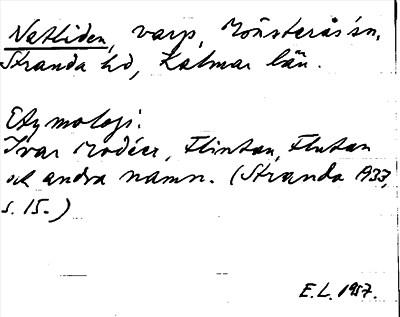 Natliden, varp, Mönsterås sn,
Stranda hd, Kalmar län.
Etymologi:
Ivar Modéer, Flintan, Flutan
och andra namn. (Stranda 1937,
s. 15.)
E.L. 1957.